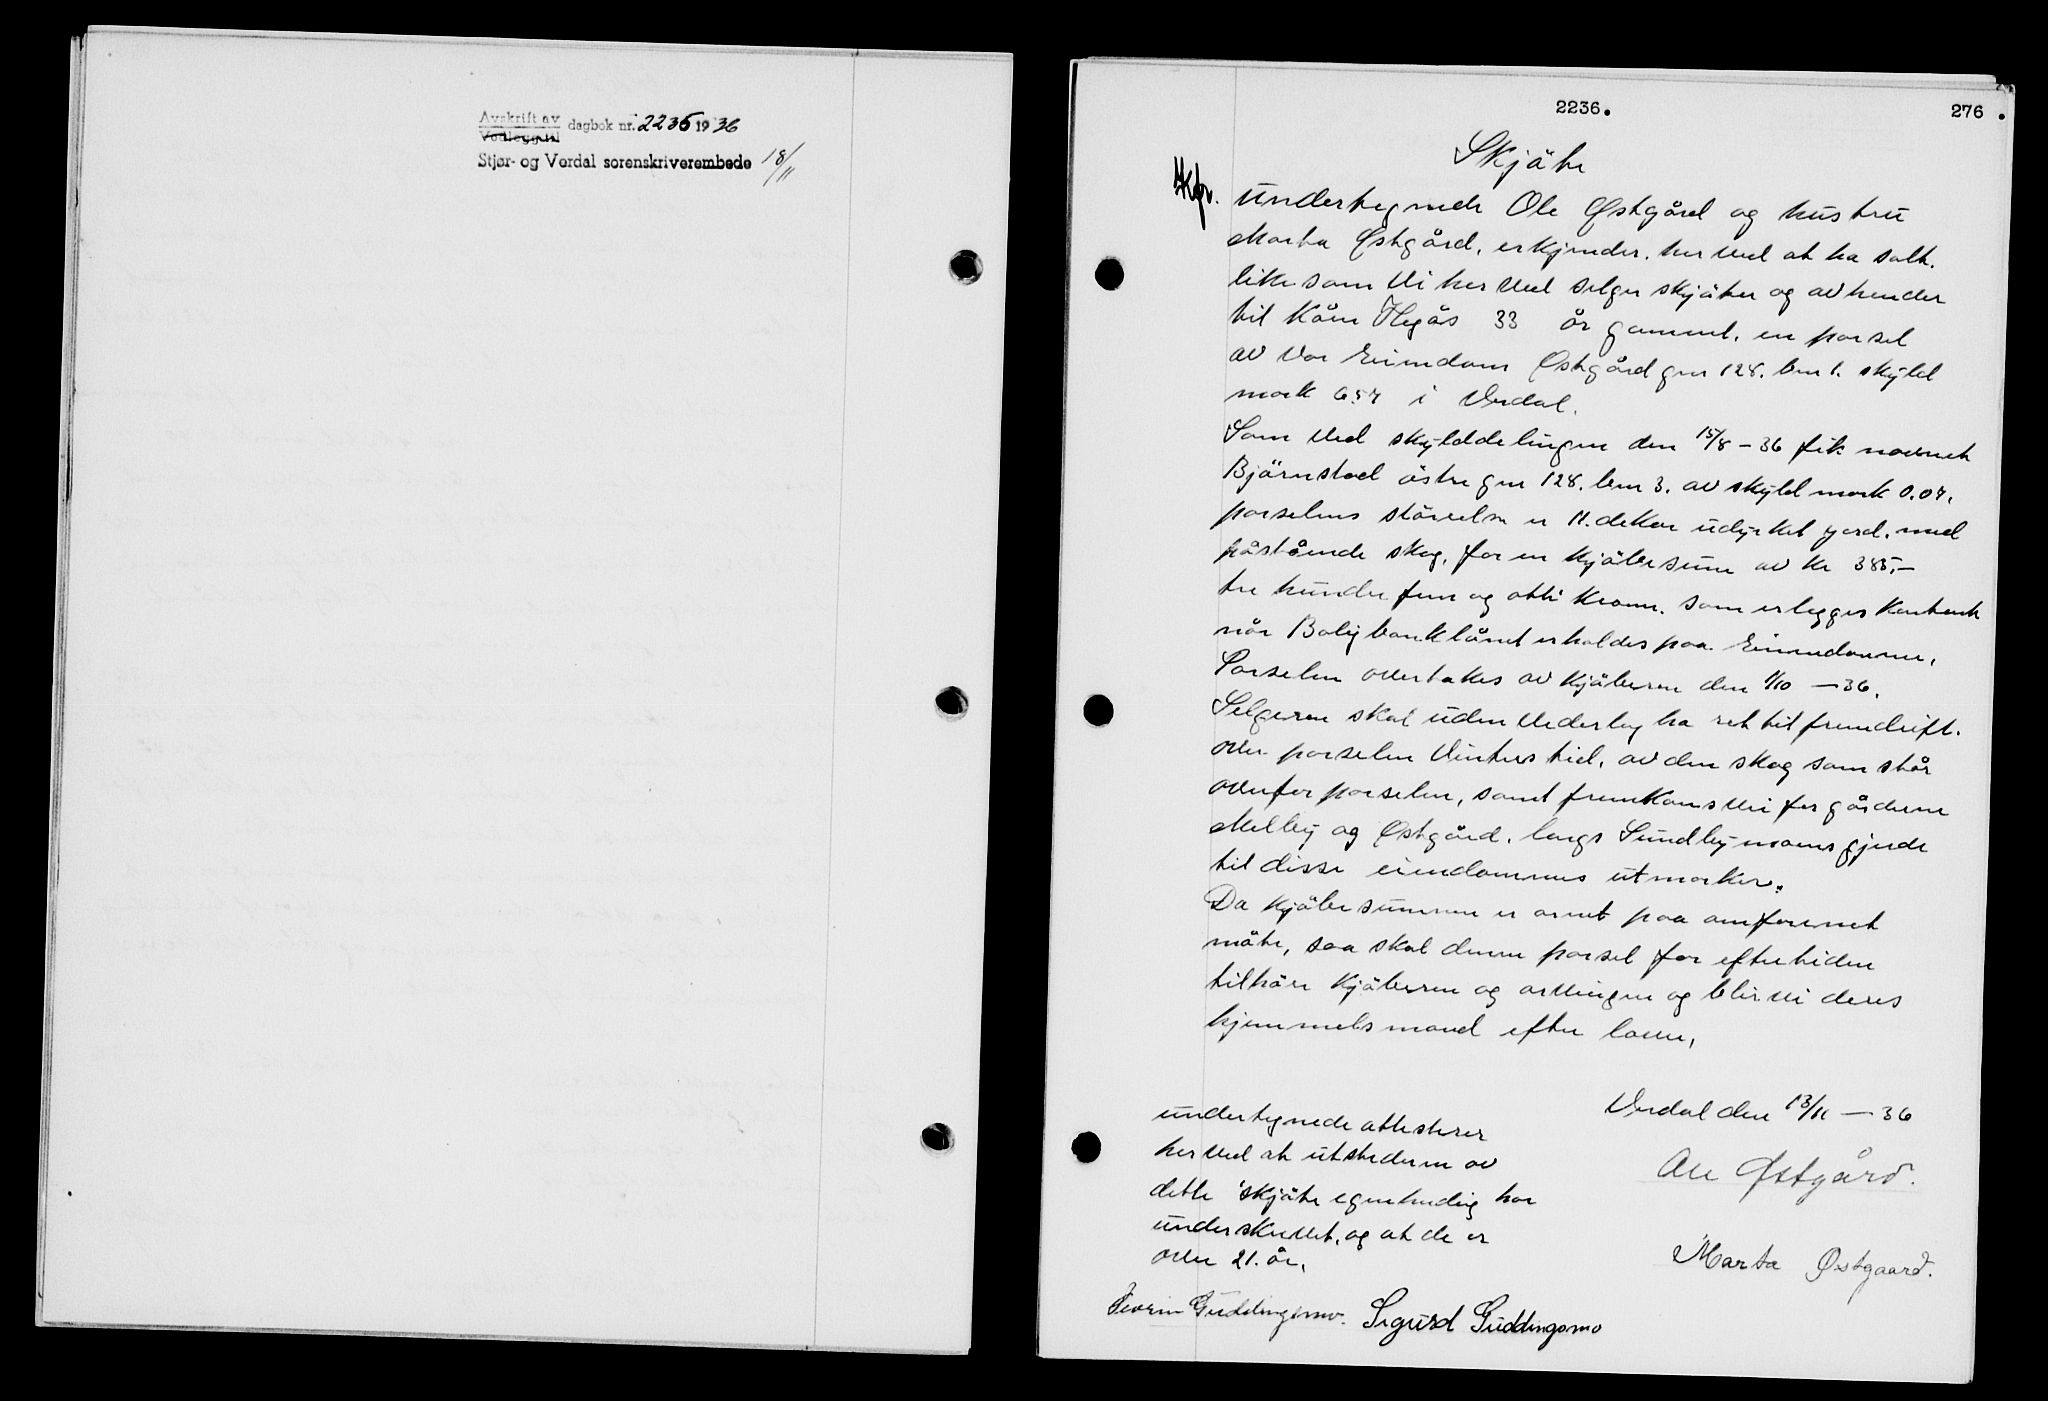 Avskrift av
Vedlegg til dagbok nr. 2235 1936
Stjør- og Verdal sorenskriverembede 18/11
2236.
276.
Skjäte
undertegnede Ole Østgård og hustru
Marta Østgård, erkjender. herved at ha solt.
likesom vi herved selger skjäter og avhender
til Kåre Hegås 33 år gammel, en parsel
av vor Eiendom Østgård gnr 128. bnr 1. skyld
mark 6.57 i Verdal.
Som ved skylddelingen den 15/8 - 36 fik navnet
Björnstad östre gnr 128. bnr 3. av skyld mark 0.07,
parselens störrelse er 11. dekar udyrket jord. med
påstående skog, for en kjöbesum av kr 385,-
tre hundre fem og otti kroner. som erlegges kontant
når Boligbanklånet erholdes paa Eiendommen,
Parselen overtakes av kjöberen den 1/10 - 36.
Selgeren skal uden vederlag ha ret til fremdrift.
over parselen Vinters tid, av den skog som står
ovenfor parselen, samt fremkomsvei for gårdene
Melby og Østgård. langs Sundbymoens gjerde
til disse eiendommes utmarker.
Da kjöbesummen er ornet paa omforenet
måte, saa skal denne parsel for eftertiden
tilhöre kjöberen og arvinger og blir vi deres
hjemmelsmand efter loven,
Verdal den 13/11 - 36
undertegnede attesterer
herved at utstederne av
dette skjäte egenhendig har
underskrevet, og at de er
over 21. år,
Ole Østgård.
Marta Østgaard.
Guddingsmo. Sigurd Guddingsmo